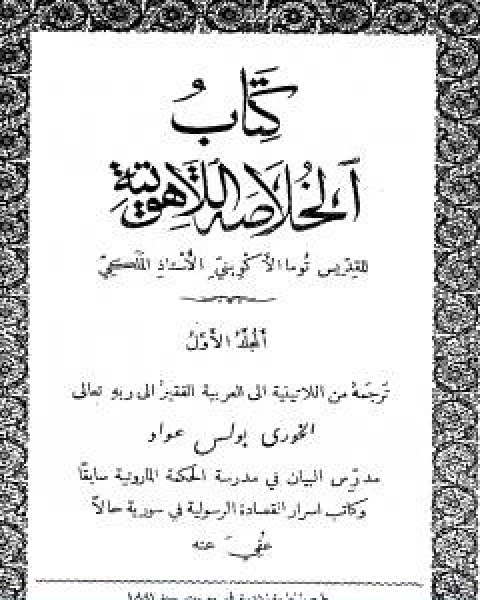 كتاب
الخلاصة اللاهوتية
للقديس توما الاكوينيّ الأستاذ الملكيّ
المجلد الأوّل
ترجمهُ من اللاتينية الى العربية الفقيرُ الى ربهِ تعالى
الخورى بولس عواد
مدرّس البيان في مدرسة الحكمة المارونية سابقًا
وكاتب اسرار القصادة الرسولية في سورية حالاً
عُفِيَ عنه